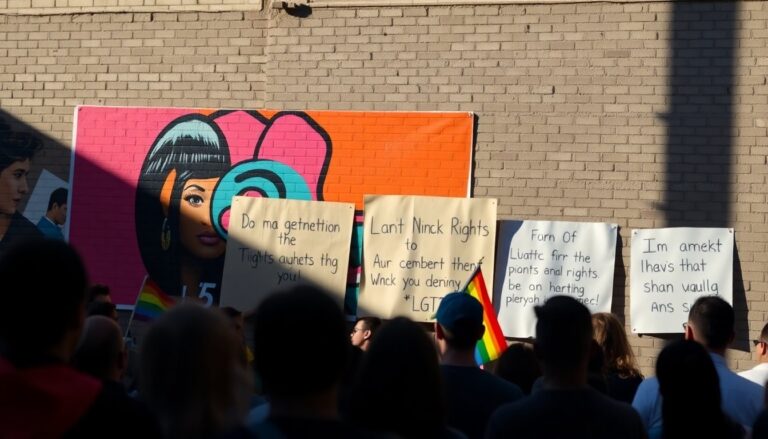 Do ma getnettion
the
Tigits auhets thg
you!
Lant Ninck Rights
to
Aur cembert then
Wnck you deniny
*LGT
Forn Of
firr the
piants and rights,
be on harting
Im amekt
Ihavs that
shan vaullg
Ans s